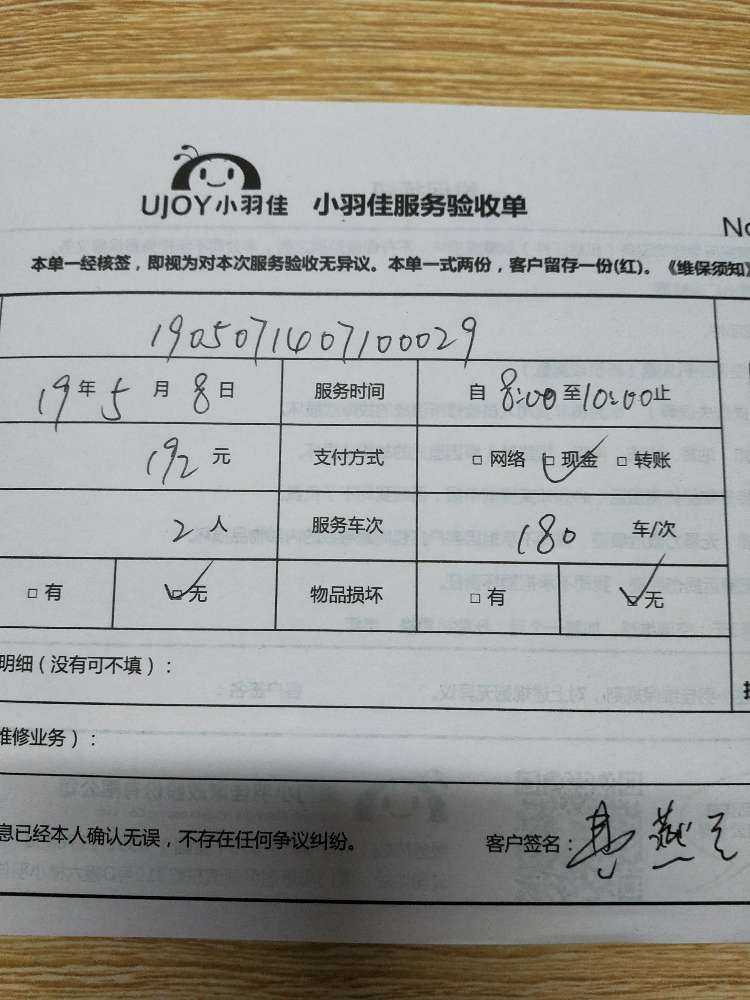 UJOY小羽佳 小羽佳服务验收单
No
本单一经核签，即视为对本次服务验收无异议。本单一式两份，客户留存一份(红)。《维保须知》
1905071407100029
19年5月8日 服务时间 自8:00至10:00止
192元 支付方式 □网络 □现金 □转账
2人 服务车次 180 车/次
□有 □无 物品损坏 □有 □无
明细（没有可不填）：
维修业务）：
息已经本人确认无误，不存在任何争议纠纷。 客户签名：